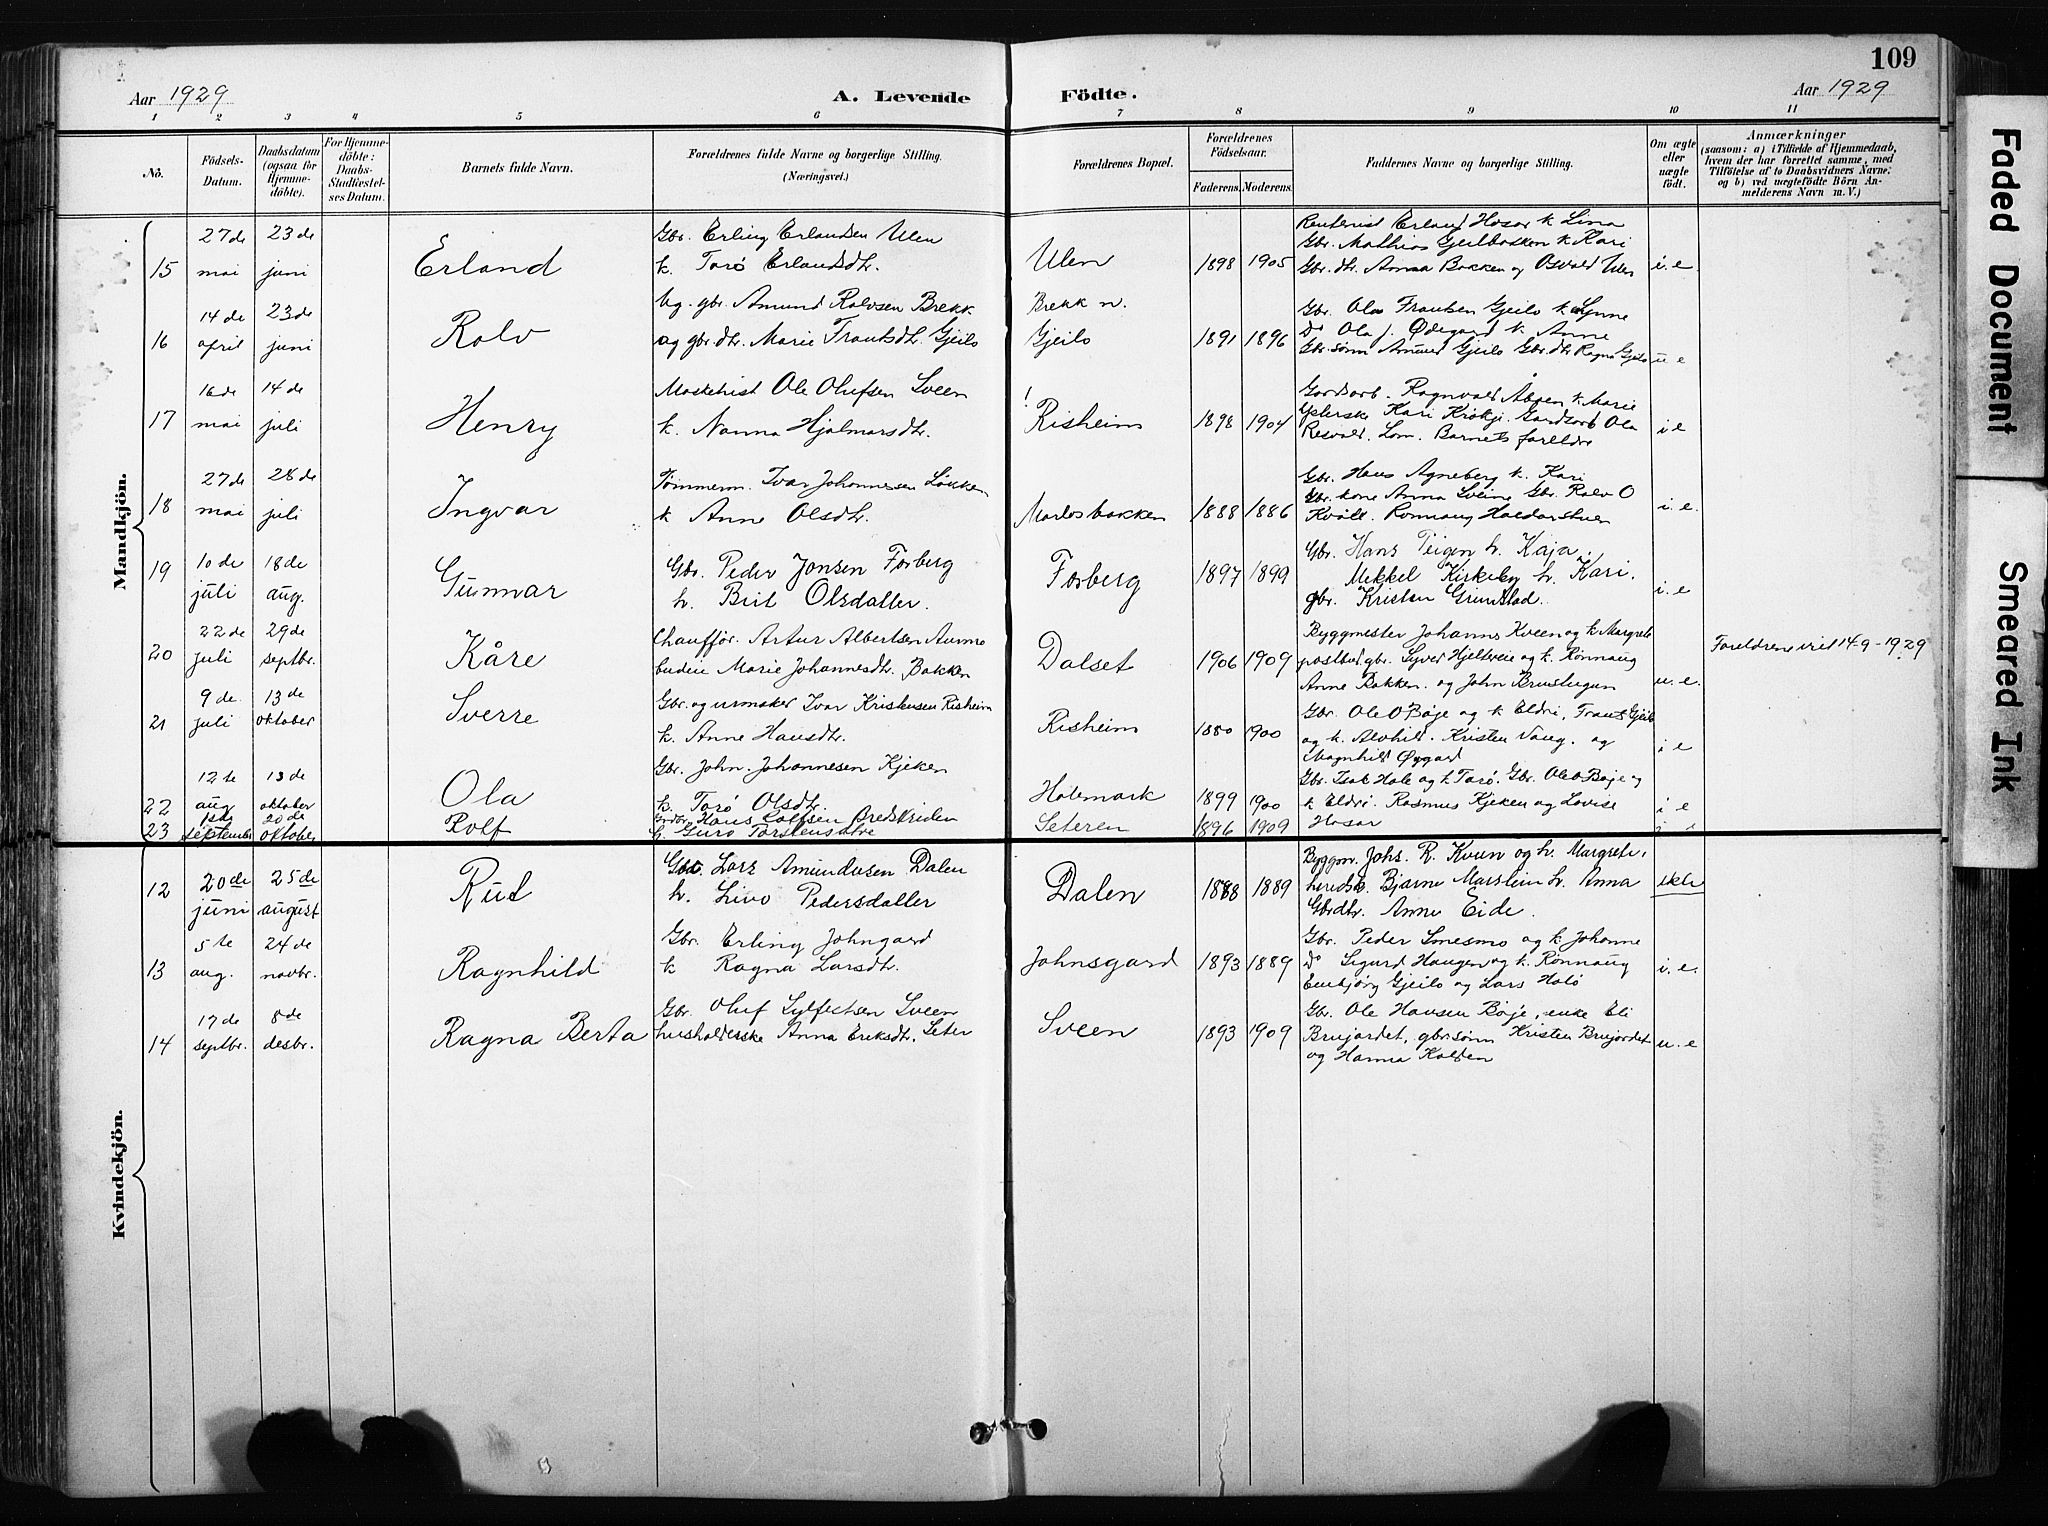 109
Aar 1929
A. Levende Födte.
Aar 1929
1 2 3 4 5 6 7 8 9 10 11
No.
Födsels-Datum.
Daabsdatum (ogsaa for Hjemmedöbte).
For Hjemmedöbte: Daabs-Stadfæstelses Datum.
Barnets fulde Navn.
Forældrenes fulde Navne og borgerlige Stilling.
(Næringsvei.)
Forældrenes Bopæl.
Forældrenes Födselsaar.
Faderens. Moderens.
Faddernes Navne og borgerlige Stilling.
Om ægte eller uægte födt.
Anmærkninger
(saasom: a) i Tilfælde af Hjemmedaab, hvem der har forrettet samme, med Tilföielse af to Daabsvidners Navne; og b) ved uægtefödte Börn Anmelderens Navn m. V.)
Mandkjön.
15 27de mai 23de juni Erland Gbr. Erling Erlandsen Ulen k. Torø Erlandsdtr. Ulen 1898 1905 Rentenist Erland Hosar k. Lina Gbr. Mathias Gjeilbakken k. Kari Gbr. dtr. Anna Bakken og Osvald Ulen i. e.
16 14de april 23de juni Rolv Ug. gbr. Amund Rolvsen Brekk og gbr. dtr. Marie Frantsdtr. Gjeilo Brekk n. Gjeilo 1891 1896 Gbr. Ola Frantsen Gjeilo k. Synne Do Ola J. Ødegard k. Anne Gbr. sønn Amund Gjeilo Gbr. dtr. Ragna Gjeilo u e
17 16de mai 14de juli Henry Maskinist Ole Olufsen Sveen k. Nanna Hjalmarsdtr. Risheim 1898 1904 Ragnvald Åboen k. Marie Kari Gardsarb Ola Lom. Barnets foreldre i e
18 27de mai 28de juli Ingvar Tømmerm. Ivar Johannessen Løkken k Anne Olsdtr. Marlosbakken 1888 1886 Gbr. Hans Agneberg k. Kari Gbr. kone Anna Sveine Gbr. Rolv O Kvåle. Ronnaug Haldorstuen i. e.
19 10de juli 18de aug. Gunnar Gbr. Peder Jonsen Forberg h. Brit Olsdatter. Forberg 1897 1899 Gbr. Hans Teigen h. Kaja. Mikkel Kirkeby h. Kari. gbr. Kristen Grimstad. i. e
20 22de juli 29de septbr. Kåre Chauffør. Artur Albertsen Aurmo budeie Marie Johannesdtr. Bakken Dalset 1906 1909 Byggmester Johannes Kveen og k. Margrete postbud gbr. Syver Hjeltveie og k. Rønnaug Anne Bakken. og John Brustugun u. e. Foreldrene viet 14-9-1929
21 9de juli 13de oktober Sverre Gbr. og urmaker Ivar Kristensen Risheim k. Anne Hansdtr. Risheim 1880 1900 Gbr. Ole O Bøje og k Eldri, Frants Gjeilo og k. Alvhild. Kristen Vang. og Magnhild Øygard i e
22 12te aug 13de oktober Ola Gbr. John. Johannesen Kjeken k. Torø Olsdtr. Holemark 1899 1900 Gbr. Isak Hole og k Torø. Gbr. Ole O Bøje og k Eldri. Rasmus Kjeken og Lovise Hosar i e
23 september 20de oktober Rolf Hans Rolfsen Bredskriden h. Guro Torstensdtr Seteren 1896 1909
Kvindekjön.
12 20de juni 25de august Rut Gbr. Lars Amundsen Dalen h. Livo Pedersdatter Dalen 1888 1889 Byggm. Johs. R. Kveen og h. Margrete, Bjarne Marstein h. Anna Gbrdtr. Anne Eide. ekte
13 5te aug. 24de novbr. Ragnhild Gbr. Erling Johngard k Ragna Larsdtr. Johnsgard 1893 1889 Gbr. Peder Smesmo og k Johanne Do Sigurd Haugen og k. Rønnaug Embjørg Gjeilo og Lars Holø i. e.
14 17de septbr. 8de desbr. Ragna Berta Gbr. Oluf Sylfestsen Sveen husholderske Anna Eriksdtr. Seter Sveen 1893 1909 Gbr. Ole Hansen Bøje, enke Eli Brujordet, gbr. sønn Kristen Brujordet og Hanna Kolden u. e
Faded Document
Smeared Ink